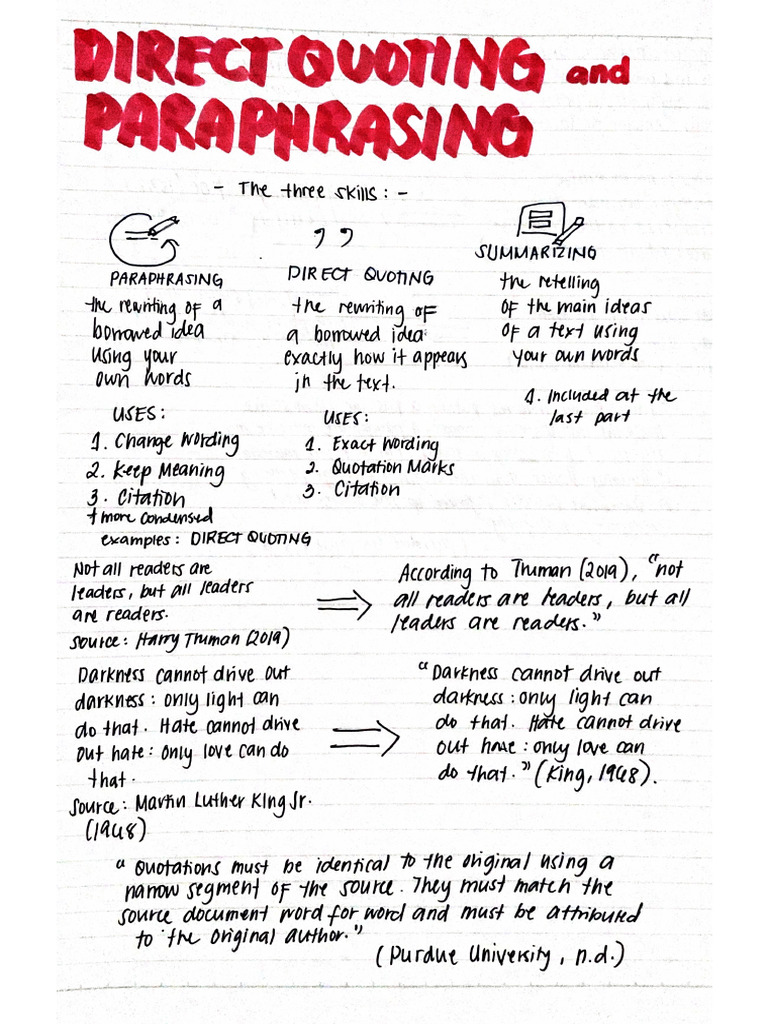 DIRECT QUOTING and
PARAPHRASING
- The three skills: -
PARAPHRASING
the rewriting of a
borrowed idea
using your
own words
USES:
1. Change Wording
2. Keep Meaning
3. Citation
+ more condensed
DIRECT QUOTING
the rewriting of
a borrowed idea
exactly how it appears
in the text.
USES:
1. Exact Wording
2. Quotation Marks
3. Citation
SUMMARIZING
the retelling
of the main ideas
of a text using
your own words
1. Included at the
last part
examples: DIRECT QUOTING
Not all readers are
leaders, but all leaders
are readers.
source: Harry Truman (2019)
According to Truman (2019), "not
all readers are leaders, but all
leaders are readers."
Darkness cannot drive out
darkness: only light can
do that. Hate cannot drive
out hate: only love can do
that.
source: Martin Luther King Jr.
(1948)
"Darkness cannot drive out
darkness: only light can
do that. Hate cannot drive
out hate: only love can
do that." (King, 1948).
"Quotations must be identical to the original using a
narrow segment of the source. They must match the
source document word for word and must be attributed
to the original author."
(Purdue University, n.d.)